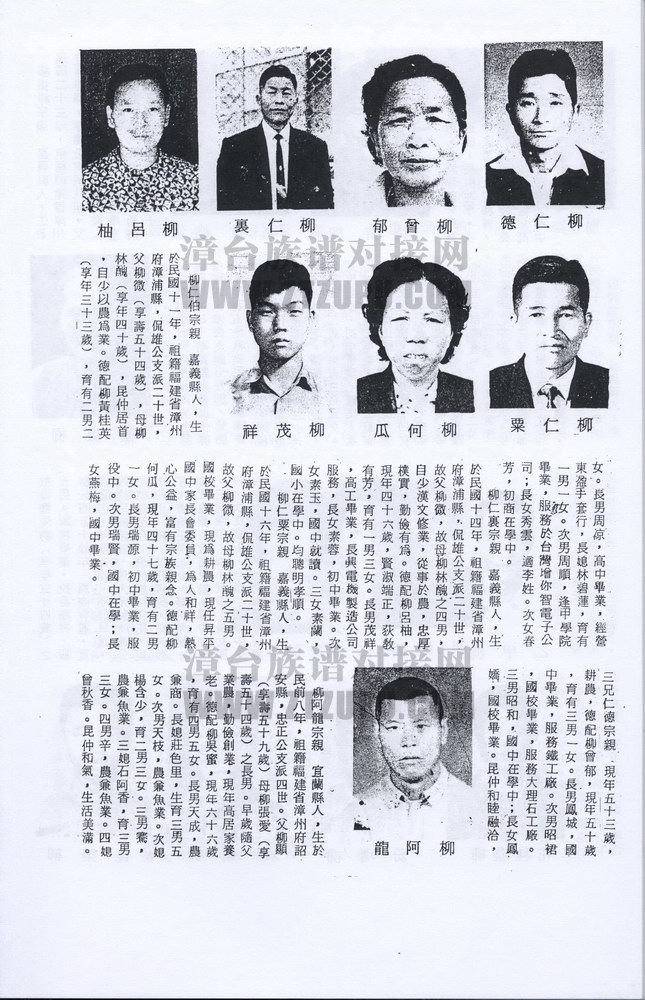 柳仁德
柳曾郁
柳仁裏
柳呂柚
柳仁粟
柳何瓜
柳茂祥
漳台族谱对接网
柳仁伯宗親　嘉義縣人，生
於民國十一年，祖籍福建省漳州
府漳浦縣，侃雄公支派二十世，
父柳微（享壽五十四歲），母柳
林醜（享年四十歲），昆仲居首
，自少以農爲業。德配柳黃桂英
（享年三十三歲），育有二男二
女。長男周凉，高中畢業，經營
東盈手套行，長媳林碧蓮，育有
一男一女。次男周順，逢甲學院
畢業，服務於台灣增你智電子公
司；長女秀雲，適李姓。次女春
芳，初商在學中。
柳仁裏宗親　嘉義縣人，生
於民國十四年，祖籍福建省漳州
府漳浦縣，侃雄公支派二十世，
故父柳微，故母柳林醜之四男，
自少漢文修業，從事於農，忠厚
樸實，勤儉有爲。德配柳呂柚，
現年四十六歲，賢淑端正，荻教
有芳，育有一男三女。長男茂祥
，高工畢業，長興電機製造公司
服務，長女素蓉，初中畢業。次
女素玉，國中就讀。三女素蘭，
國小在學中。均聰明孝順。
柳仁粟宗親　嘉義縣人，生
於民國十六年，祖籍福建省漳州
府漳浦縣，侃雄公支派二十世，
故父柳微，故母柳林醜之五男。
國校畢業，現爲耕農，現任昇平
國中家長會委員，爲人和祥，熱
心公益，富有宗族親念。德配柳
何瓜，現年四十七歲，育有二男
一女。長男瑞源，初中畢業，服
役中。次男瑞賢，國中在學；長
女燕梅，國中畢業。
漳台族谱对接网
三兄仁德宗親　現年五十三歲，
耕農，德配柳曾郁，現年五十歲
，育有三男一女。長男鳳城，國
中畢業，服務鐵工廠。次男昭裙
，國校畢業，服務大理石工廠。
三男昭和，國中在學中；長女鳳
嬌，國校畢業。昆仲和睦融洽，
柳阿龍
柳阿龍宗親　宜蘭縣人，生於
民前八年，祖籍福建省漳州府詔
安縣，忠正公支派四世。父柳顯
（享壽五十九歲）母柳張愛（享
壽五十四歲）之長男。早歲隨父
業農，勤儉創業，現年高居家養
老。德配柳吳蜜，現年六十六歲
，育有四男五女。長男天成，農
兼商。長媳莊色里，生育三男五
女。次男天枝，農兼魚業。次媳
楊含少，育二男三女。三男騫，
農兼魚業。三媳石阿香，育三男
三女。四男辛，農兼魚業。四媳
曾秋香。昆仲和氣，生活美滿。